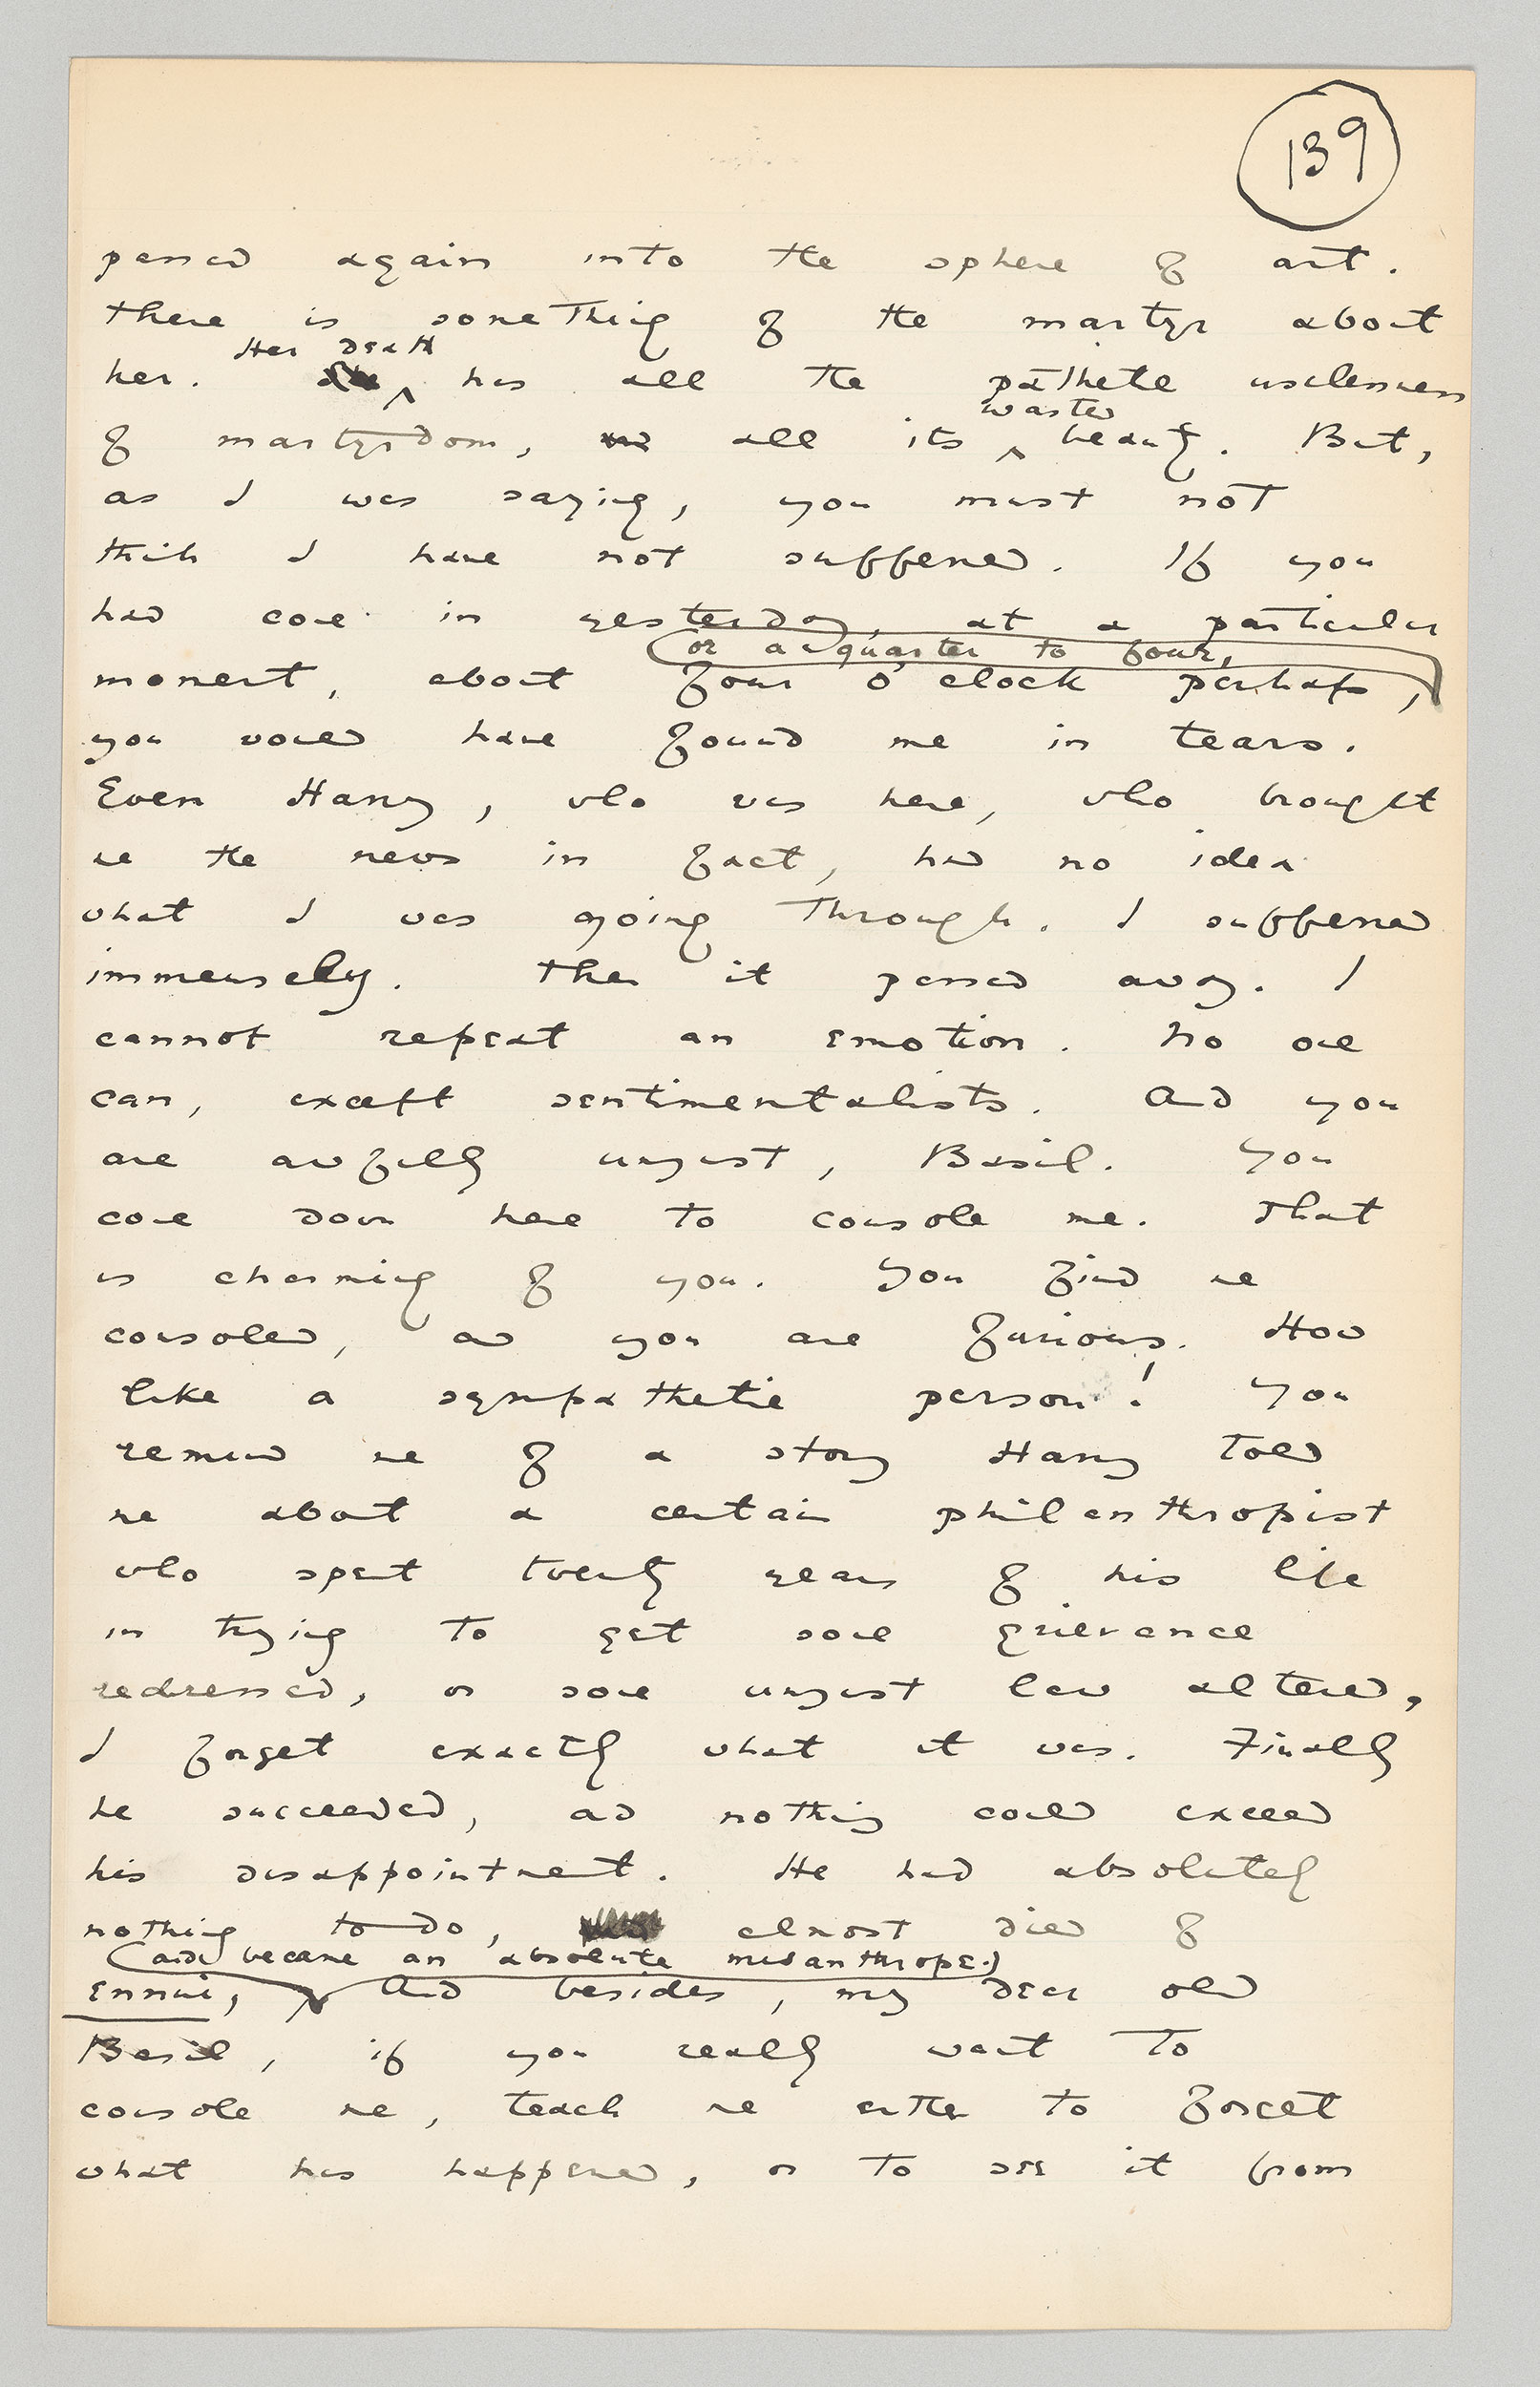 139
passed again into the sphere of art.
There is something of the martyr about
Her death
her. has all the pathetic uselessness
wasted
of martyrdom, and all its beauty. But,
as I was saying, you must not
think I have not suffered. If you
had come in yesterday, at a particular
or a quarter to four,
moment, about four o'clock perhaps,
you would have found me in tears.
Even Harry, who was here, who brought
me the news in fact, had no idea
what I was going through. I suffered
immensely. Then it passed away. I
cannot repeat an emotion. No one
can, except sentimentalists. And you
are awfully unjust, Basil. You
come down here to console me. That
is charming of you. You find me
consoled, and you are furious. How
like a sympathetic person! You
remind me of a story Harry told
me about a certain philanthropist
who spent twenty years of his life
in trying to get some grievance
redressed, or some unjust law altered,
I forget exactly what it was. Finally
he succeeded, and nothing could exceed
his disappointment. He had absolutely
nothing to do, almost died of
(and became an absolute misanthrope.)
ennui, And besides, my dear old
Basil, if you really want to
console me, teach me either to forget
what has happened, or to see it from